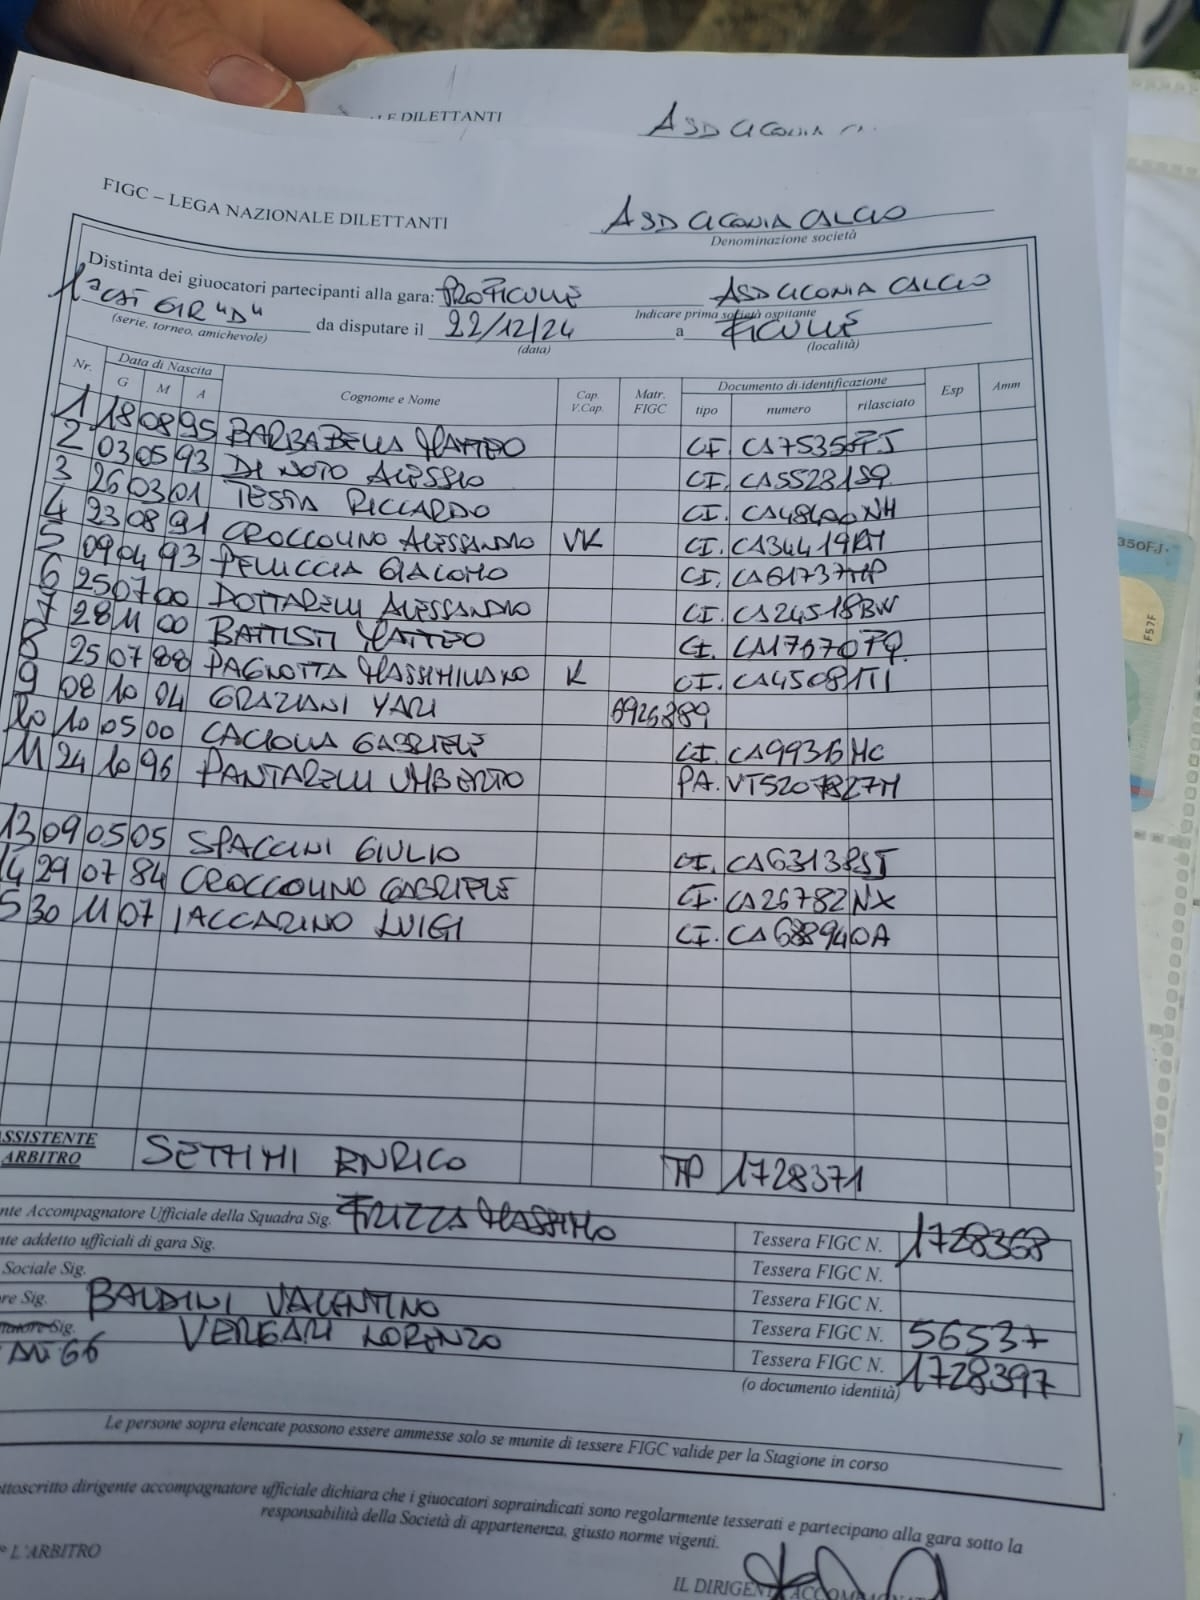 LE DILETTANTI ASD CICONIA
FIGC – LEGA NAZIONALE DILETTANTI
ASD CICONIA CALCIO
Denominazione società
Distinta dei giuocatori partecipanti alla gara: PRO FICULLE ASD CICONIA CALCIO
Indicare prima società ospitante
1ª CAT GIR "D" da disputare il 22/12/24 a FICULLE
(serie, torneo, amichevole) (data) (località)
Nr. Data di Nascita Cognome e Nome Cap. V.Cap. Matr. FIGC Documento di identificazione Esp Amm
G M A tipo numero rilasciato
1 18 08 95 BARBABELLA MATTEO CI. CA75356FJ
2 03 05 93 DI NOTO ALESSIO CI. CA55231SQ
3 26 03 01 TESTA RICCARDO CI. NH
4 23 08 91 CROCCOLINO ALESSANDRO VK CI. CA34419
5 09 04 93 PELUCCIA GIACOMO CI. CA61737MP
6 25 07 00 DOTTARELLI ALESSANDRO CI. CA24518BW
7 28 11 00 BATTISTI MATTEO CI.
8 25 07 88 PAGNOTTA MASSIMILIANO K CI. CA45081TI
9 08 10 04 GRAZIANI YARI 6926389
10 10 05 00 CACIOLLA GABRIELE CI. CA99316MC
11 24 10 96 PANTARELLI UMBERTO PA.
13 09 05 05 SPACCINI GIULIO CI. CA63138SJ
14 29 07 84 CROCCOLINO GABRIELE CI. CA26782NX
5 30 11 07 IACCARINO LUIGI CI. CA68894OA
ASSISTENTE
ARBITRO SETTIMI ENRICO TP 1728371
nte Accompagnatore Ufficiale della Squadra Sig. FRIZZA MASSIMO Tessera FIGC N. 1728368
nte addetto ufficiali di gara Sig. Tessera FIGC N.
Sociale Sig. Tessera FIGC N.
re Sig. BALDINI VALENTINO Tessera FIGC N. 56537
Sig. VERGARI LORENZO Tessera FIGC N. 1728397
(o documento identità)
Le persone sopra elencate possono essere ammesse solo se munite di tessere FIGC valide per la Stagione in corso
ttoscritto dirigente accompagnatore ufficiale dichiara che i giuocatori sopraindicati sono regolarmente tesserati e partecipano alla gara sotto la
responsabilità della Società di appartenenza, giusto norme vigenti.
L'ARBITRO
IL DIRIGENTE
350FJ
F57F